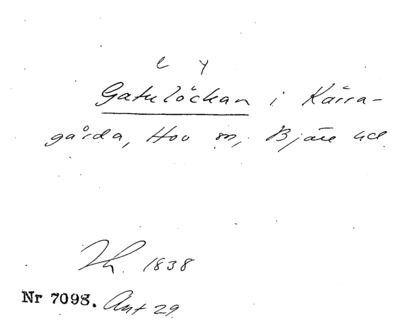 e y
Gatulöckan i Kärra-
gårda, Hov sn, Bjäre hd.
Th. 1838
Nr 7098. Ant 29.